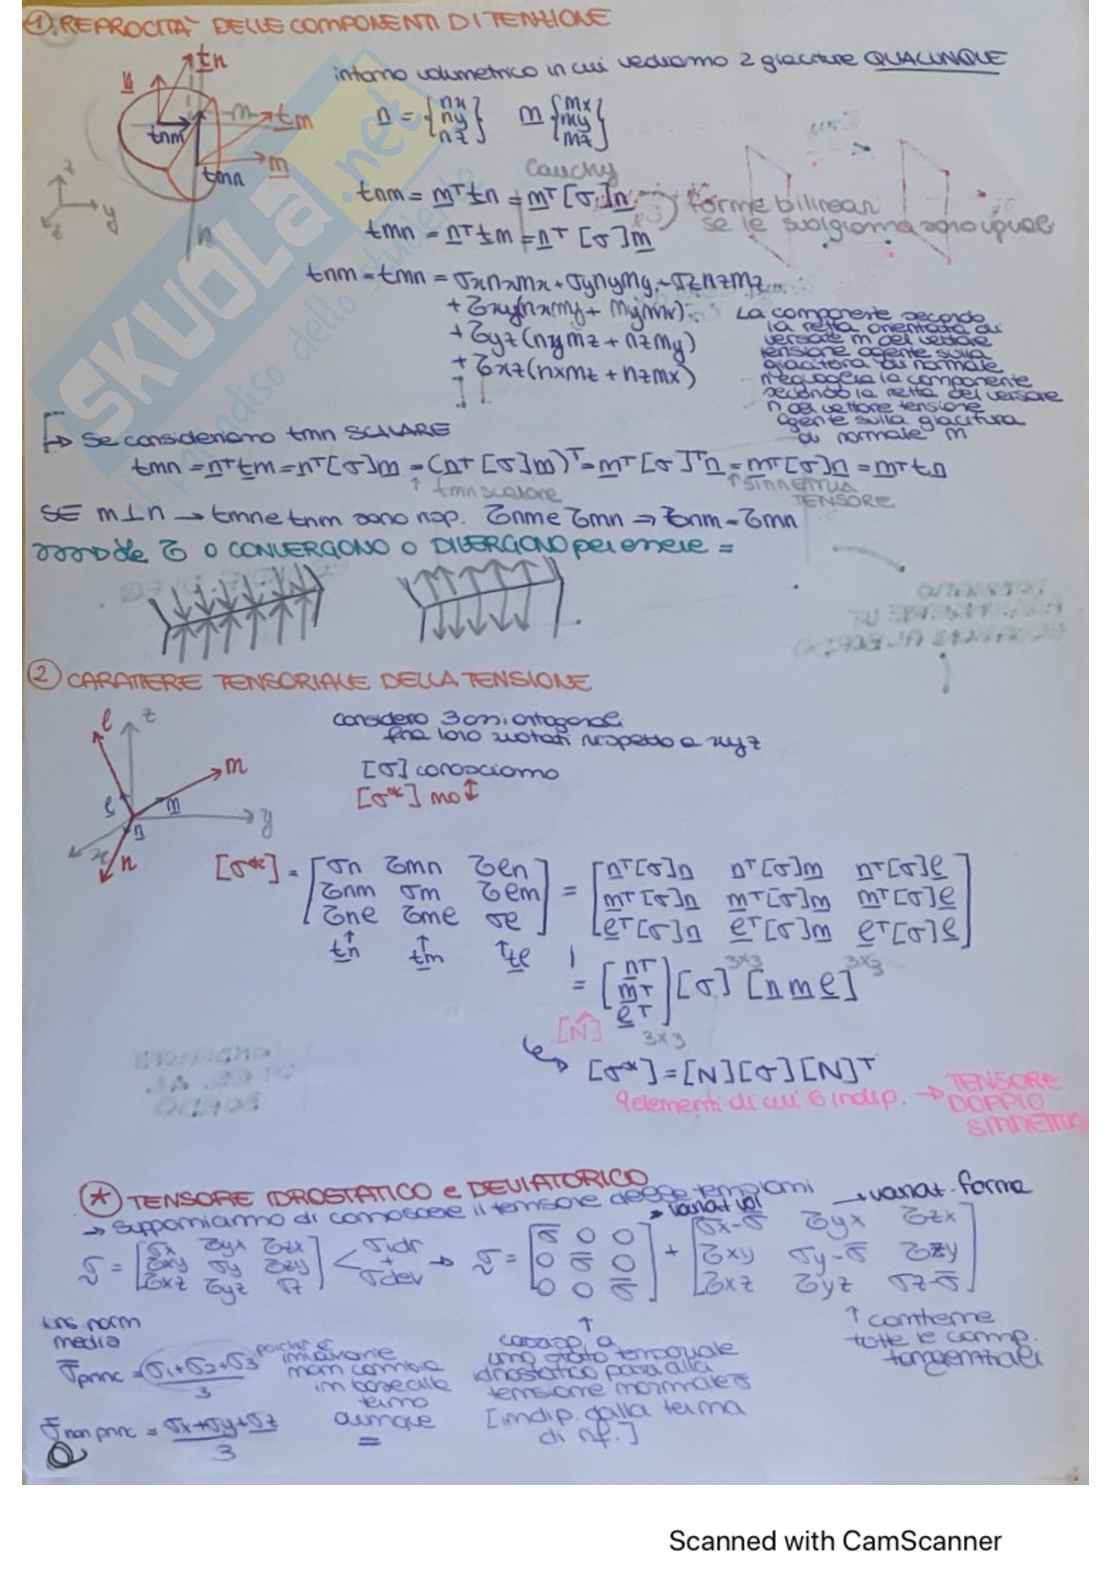 ① REPROCITÀ DELLE COMPONENTI DI TENZIONE
intorno volumetrico in cui vediamo 2 giaciture QUALUNQUE
n = {nx ny nz} m {mx my mz}
u
tn
m
tm
tnm
m
tmn
n
z
y
Cauchy
tnm = mᵀ tn = mᵀ [σ] n
forme bilineari
tmn = nᵀ tm = nᵀ [σ] m
se le svolgiamo sono uguali
tnm = tmn = σx nx mx + σy ny my + σz nz mz
+ τxy(nx my + my mx)
+ τyz (ny mz + nz my)
+ τxz (nx mz + nz mx)
La componente secondo
la retta orientata di
versore m del vettore
tensione agente sulla
giacitura di normale
n eguaglia la componente
secondo la retta del versore
n del vettore tensione
agente sulla giacitura
di normale m
↳ Se consideriamo tmn SCALARE
tmn = nᵀ tm = nᵀ [σ] m = (nᵀ [σ] m)ᵀ = mᵀ [σ]ᵀ n = mᵀ [σ] n = mᵀ tn
↑ tmn scalare
↑ SIMMETRIA TENSORE
SE m ⊥ n → tmn e tnm sono risp. τnm e τmn ⇒ τnm = τmn
le τ O CONVERGONO O DIVERGONO per essere =
② CARATTERE TENSORIALE DELLA TENSIONE
considero 3 assi ortogonali
fra loro ruotati rispetto a xyz
[σ] conosciamo
[σ*] no
ℓ
z
m
ℓ
m
y
n
x
n
[σ*] = [σn τmn τℓn
τnm σm τℓm
τnℓ τmℓ σℓ]
= [nᵀ[σ]n nᵀ[σ]m nᵀ[σ]ℓ
mᵀ[σ]n mᵀ[σ]m mᵀ[σ]ℓ
ℓᵀ[σ]n ℓᵀ[σ]m ℓᵀ[σ]ℓ]
↑ tn ↑ tm ↑ tℓ
= [nᵀ mᵀ ℓᵀ] [σ] 3x3 [n m ℓ] 3x3
[N] 3x3
↳ [σ*] = [N][σ][N]ᵀ
9 elementi di cui 6 indip. → TENSORE
DOPPIO
SIMMETRICO
(*) TENSORE IDROSTATICO e DEVIATORICO
→ Supponiamo di conoscere il tensore delle tensioni
→ variaz vol
→ variaz. forma
σ = [σx τyx τzx
τxy σy τzy
τxz τyz σz]
< σidr + σdev
→ σ = [σ̄ 0 0
0 σ̄ 0
0 0 σ̄]
+ [σx-σ̄ τyx τzx
τxy σy-σ̄ τzy
τxz τyz σz-σ̄]
tns norm
media
σ̄princ = σ1+σ2+σ3 / 3
poiché è
invariante
non cambia
in base alla
terna
dunque
=
σ̄non princ = σx+σy+σz / 3
↑
corrisp. a
uno stato tensionale
idrostatico pari alla
tensione normale σ̄
[indip. dalla terna
di rif.]
↑ contiene
tutte le comp.
tangenziali
SKUOLA.net
il paradiso dello studente
Scanned with CamScanner